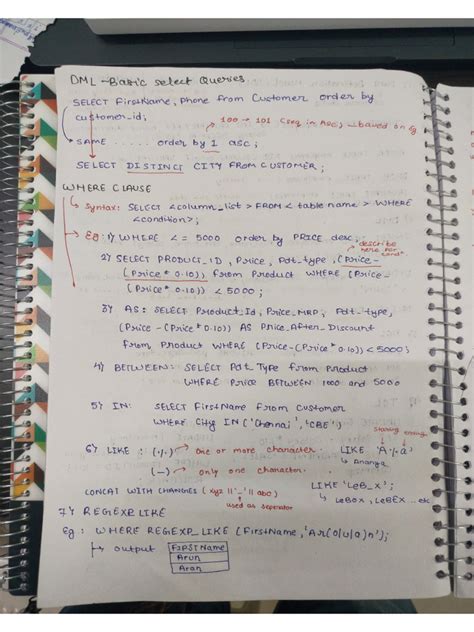 DML - Basic Select Queries.
SELECT FirstName, Phone from Customer order by
customer_id;
100 → 101 (seq in Asc) based on Eg
SAME ...... order by 1 asc;
SELECT DISTINCT CITY FROM CUSTOMER;
WHERE CLAUSE
Syntax: SELECT <column_list> FROM <table name> WHERE
<condition>;
Eg: 1) WHERE <= 5000 order by PRICE desc;
describe
here for
cond^n
2) SELECT PRODUCT_ID, Price, Pdt_type, (Price -
(Price * 0.10)) from Product WHERE (Price -
(Price * 0.10)) < 5000;
3) AS: SELECT Product_Id, Price_MRP, Pdt_type,
(Price - (Price * 0.10) AS Price_After_Discount
from Product WHERE (Price - (Price * 0.10)) < 5000;
4) BETWEEN: SELECT Pdt Type from Product
WHERE Price BETWEEN 1000 and 5000
5) IN: SELECT FirstName from Customer
WHERE City IN ('Chennai', 'CBE')
starting ending
6) LIKE: (%) → one or more character. LIKE 'A%a'
↳ Ananya
(_) → only one character.
LIKE 'LeB_X';
↳ LeBox, LeBEX ... etc
CONCAT WITH CHANGES (xyz || '_' || abc)
↳ used as seperator
7) REGEXP LIKE
Eg: WHERE REGEXP_LIKE (FirstName, 'Ar(o|u|a)n');
↳ output FIRSTName
Arun
Aran